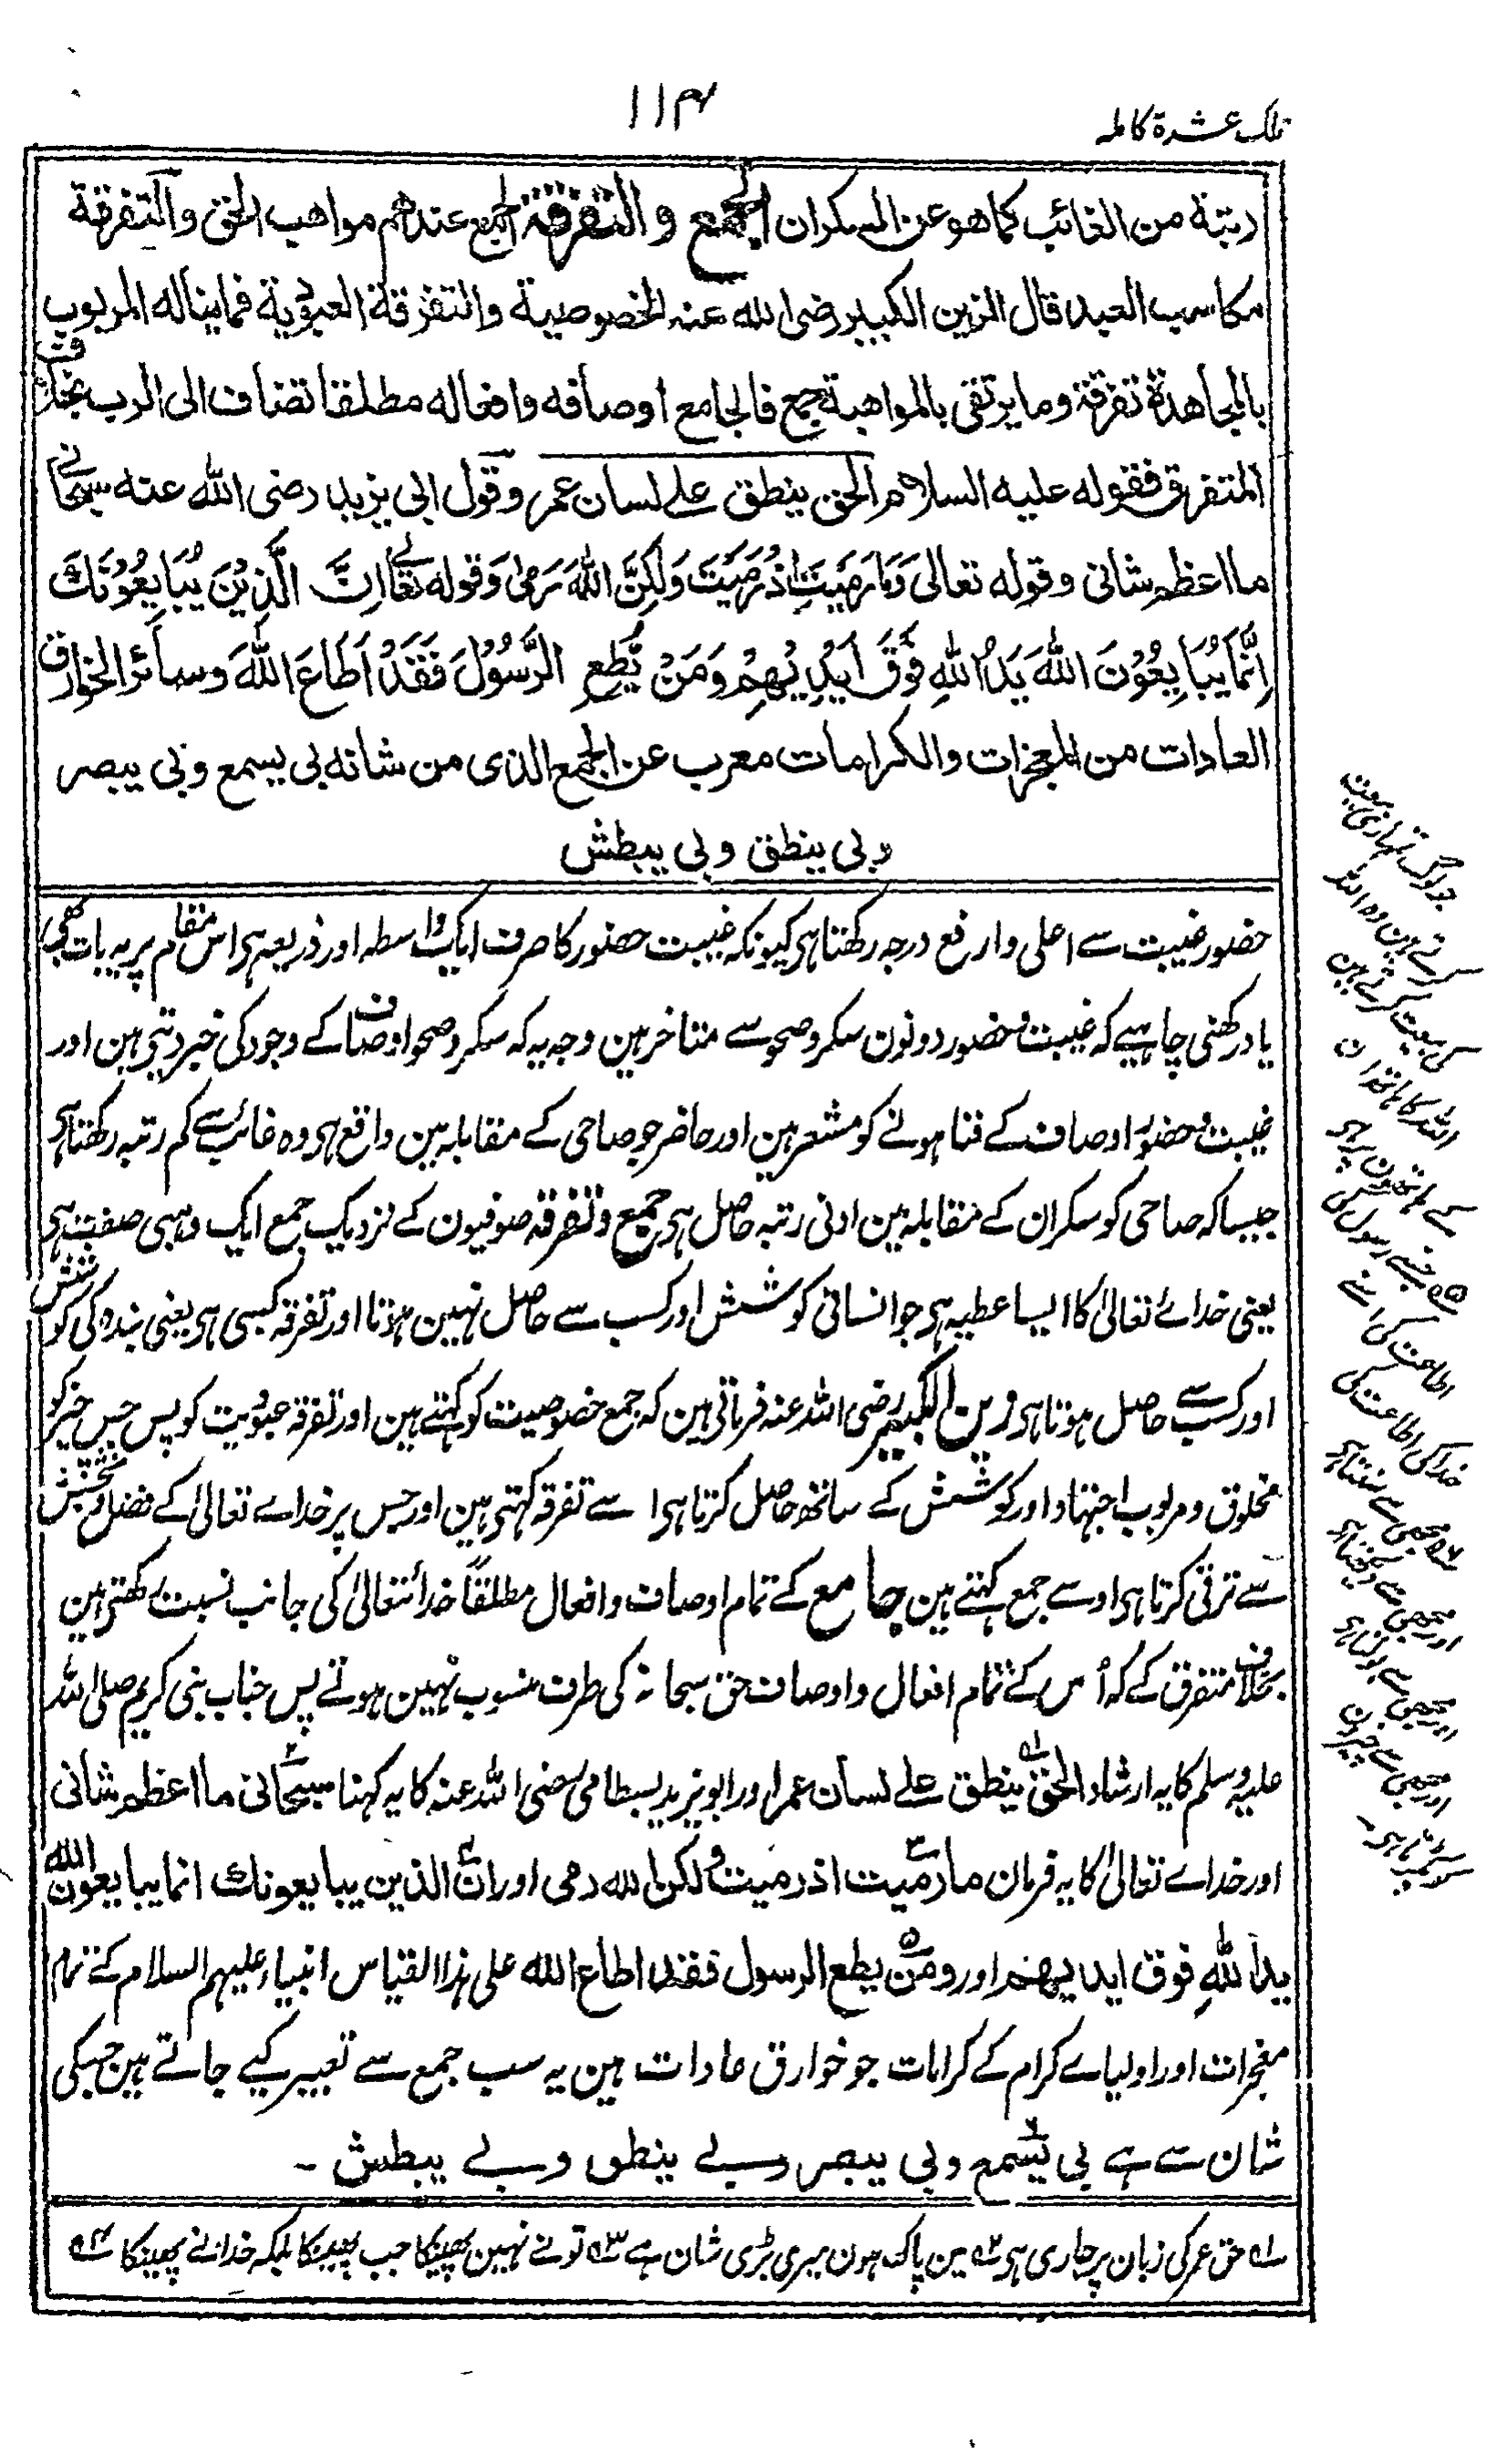 ۱۱۴
تلک عشرة کاملہ
رتبة من الغائب کما هو عن السکران الجمع والتفرقة الجمع عندهم مواهب الحق والتفرقة
مکاسب العبد قال الزین الکبیر رضی الله عنه الخصوصیة والتفرقة العبودیة فما یناله المربوب
بالمجاهدة تفرقة وما یرتقی بالمواهبة جمع فالجامع اوصافه وافعاله مطلقا تضاف الی الرب بخلاف
المتفرق فقوله علیه السلام الحق ینطق علے لسان عمر وقول ابی یزید رضی الله عنه سبحانی
ما اعظم شانی وقوله تعالی وَمَا رَمَیْتَ اِذْ رَمَیْتَ وَلٰکِنَّ اللّٰهَ رَمٰی وَقوله تعالی اِنَّ الَّذِیْنَ یُبَایِعُوْنَكَ
اِنَّمَا یُبَایِعُوْنَ اللّٰهَ یَدُ اللّٰهِ فَوْقَ اَیْدِیْهِمْ وَمَنْ یُّطِعِ الرَّسُوْلَ فَقَدْ اَطَاعَ اللّٰهَ وسائر الخوارق
العادات من المعجزات والکرامات معرب عن الجمع الذی من شانه بی یسمع وبی یبصر
وبی ینطق وبی یبطش
حضور غیبت سے اعلی وارفع درجہ رکھتا ہی کیونکہ غیبت حضور کا صرف ایک واسطہ اور ذریعہ ہی اس مقام پر یہ بات بھی
یاد رکھنی چاہیے کہ غیبت وحضور دونون سکر وصحو سے متاخر ہین وجہ یہ کہ سکر وصحو اوصاف کے وجود کی خبر دیتی ہین اور
غیبت وحضور اوصاف کے فنا ہونے کو مشعر ہین اور حاضر جو صاحی کے مقابلہ مین واقع ہی وہ غائب سے کم رتبہ رکھتا ہی
جیسا کہ صاحی کو سکران کے مقابلہ مین ادنی رتبہ حاصل ہی جمع وتفرقہ صوفیون کے نزدیک جمع ایک وہبی صفت ہی
یعنی خدائے تعالیٰ کا ایسا عطیہ ہی جو انسانی کوشش اور کسب سے حاصل نہین ہوتا اور تفرقہ کسبی ہی یعنی بندہ کی کوشش
اور کسب سے حاصل ہوتا ہی زین الکبیر رضی اللہ عنہ فرماتی ہین کہ جمع خصوصیت کو کہتے ہین اور تفرقہ عبودیت کو پس جس چیز کو
مخلوق ومربوب اجتہاد اور کوشش کے ساتھ حاصل کرتا ہی اسے تفرقہ کہتی ہین اور جس پر خداے تعالیٰ کے فضل وبخشش
سے ترقی کرتا ہی اوسے جمع کہتے ہین جامع کے تمام اوصاف وافعال مطلقاً خدائتعالیٰ کی جانب نسبت رکھتی ہین
بخلاف متفرق کے کہ اُس کے تمام افعال واوصاف حق سبحانہ کی طرف منسوب نہین ہوتے پس جناب نبی کریم صلی اللہ
علیہ وسلم کا یہ ارشاد الحق ینطق علے لسان عمر اور ابو یزید بسطامی رضی اللہ عنہ کا یہ کہنا سبحانی ما اعظم شانی
اور خداے تعالیٰ کا یہ فرمان ما رمیت اذ رمیت ولکن الله رمی اور ان الذین یبایعونك انما یبایعون الله
ید الله فوق ایدیهم اور ومن یطع الرسول فقد اطاع الله علی ہذا القیاس انبیاء علیہم السلام کے تمام
معجزات اور اولیاے کرام کے کرامات جو خوارق عادات ہین یہ سب جمع سے تعبیر کیے جاتے ہین جسکی
شان سے ہے بی یسمع وبی یبصر وبے ینطق وبے یبطش ۔
۱؎ حق عمر کی زبان پر جاری ہی ۲؎ مین پاک ہون میری بڑی شان ہے ۳؎ تو نے نہین پھینکا جب پھینکا بلکہ خدا نے پھینکا ۴؎
جو لوگ تمہاری بیعت
کرتے ہین وہ اللہ
کی بیعت کرتے ہین
اللہ کا ہاتھ ان
کے ہاتھون پر ہی
۵؎ جسنے رسول کی
اطاعت کی اسنے
خدا کی اطاعت کی
۶؎ مجھی سے سنتا ہی
اور مجھی سے دیکھتا ہی
اور مجھی سے بولتا ہی
اور مجھی سے چیزون
کو پکڑتا ہی۔